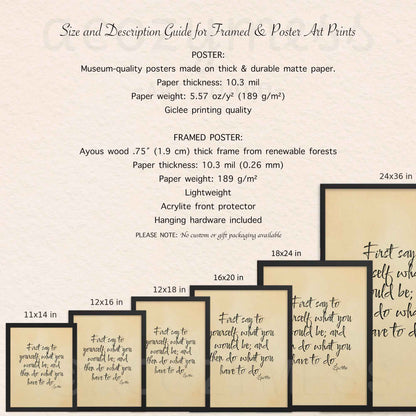 Size and Description Guide for Framed & Poster Art Prints
POSTER:
Museum-quality posters made on thick & durable matte paper.
Paper thickness: 10.3 mil
Paper weight: 5.57 oz/y² (189 g/m²)
Giclee printing quality
FRAMED POSTER:
Ayous wood .75" (1.9 cm) thick frame from renewable forests
Paper thickness: 10.3 mil (0.26 mm)
Paper weight: 189 g/m²
Lightweight
Acrylite front protector
Hanging hardware included
PLEASE NOTE: No custom or gift packaging available
11x14 in
First say to
yourself, what you
would be; and
then do what you
have to do.
12x16 in
First say to
yourself, what you
would be; and
then do what you
have to do.
12x18 in
First say to
yourself, what you
would be; and
then do what you
have to do.
16x20 in
First say to
yourself, what you
would be; and
then do what you
have to do.
18x24 in
First say to
yourself, what you
would be; and
then do what you
have to do.
24x36 in
First say to
yourself, what you
would be; and
then do what you
have to do.